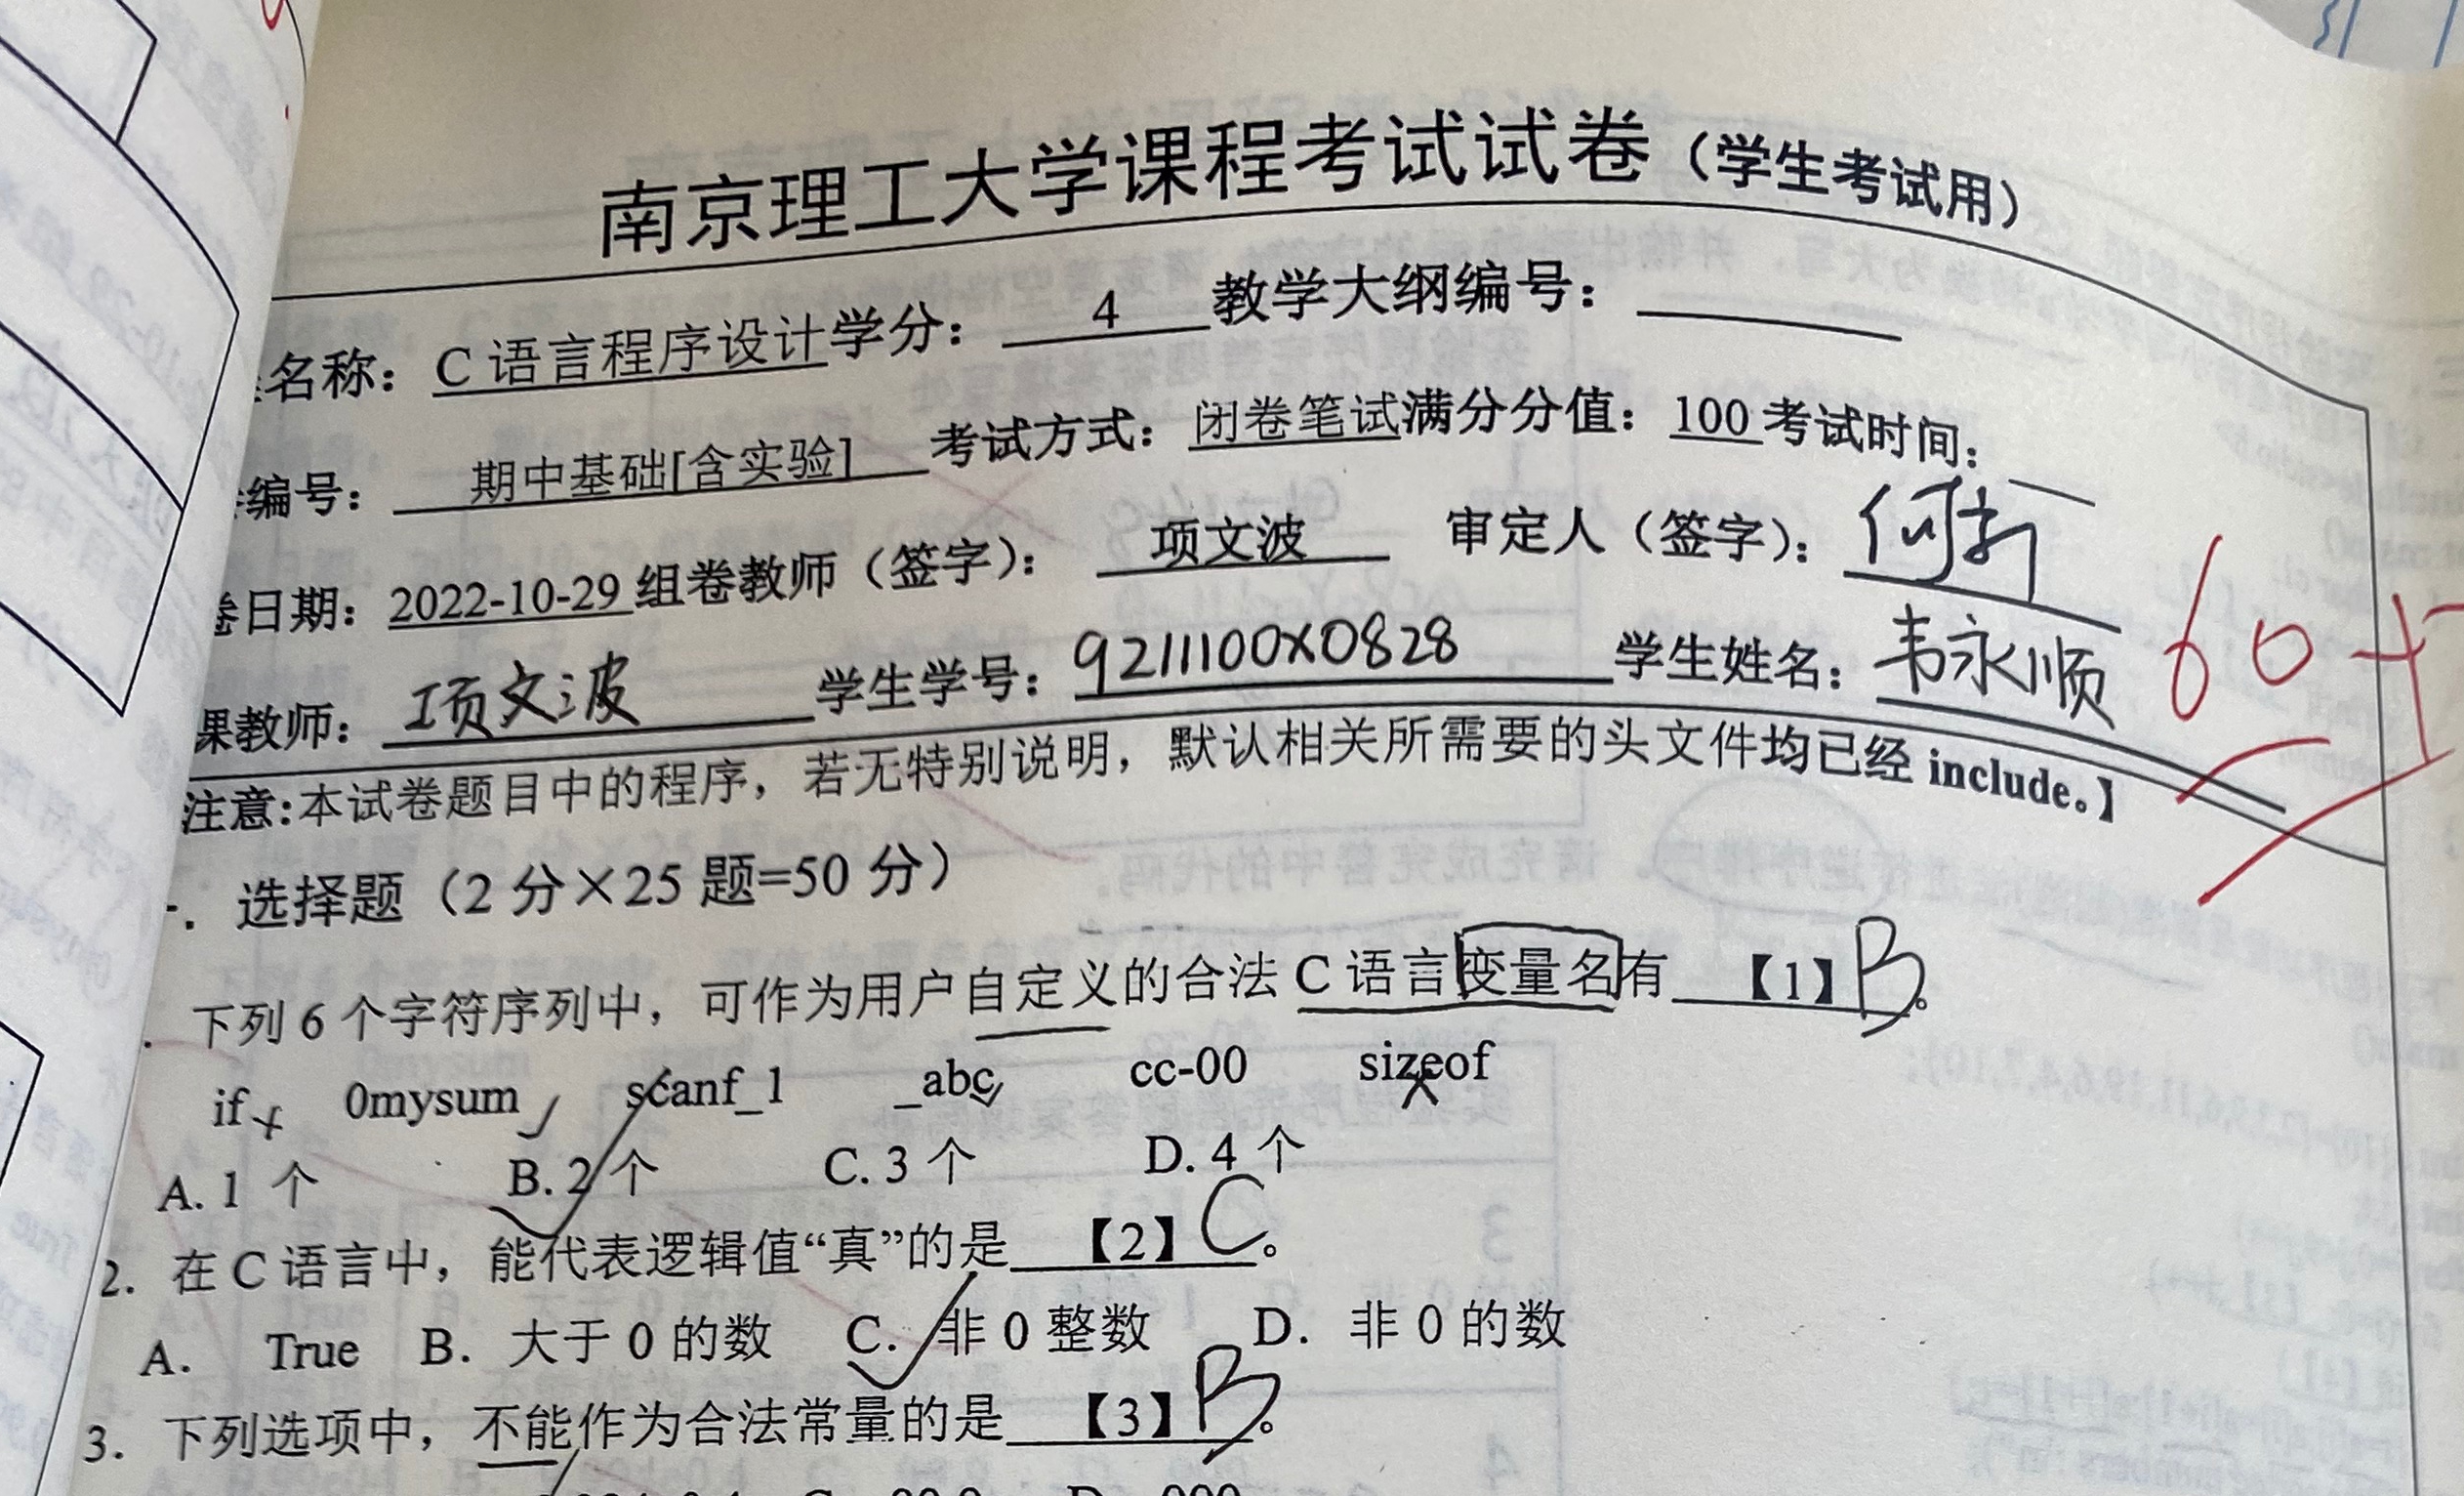 南京理工大学课程考试试卷（学生考试用）
名称：C 语言程序设计学分：4 教学大纲编号：
编号：期中基础[含实验] 考试方式：闭卷笔试满分分值：100 考试时间：
卷日期：2022-10-29 组卷教师（签字）：项文波 审定人（签字）：
课教师：项文波 学生学号：9211100X0828 学生姓名：韦永顺
60
注意:本试卷题目中的程序，若无特别说明，默认相关所需要的头文件均已经 include。】
. 选择题（2 分×25 题=50 分）
. 下列 6 个字符序列中，可作为用户自定义的合法 C 语言变量名有 【1】B。
if 0mysum scanf_1 _abc cc-00 sizeof
A. 1 个 B. 2 个 C. 3 个 D. 4 个
2. 在 C 语言中，能代表逻辑值“真”的是 【2】C。
A. True B. 大于 0 的数 C. 非 0 整数 D. 非 0 的数
3. 下列选项中，不能作为合法常量的是 【3】B。